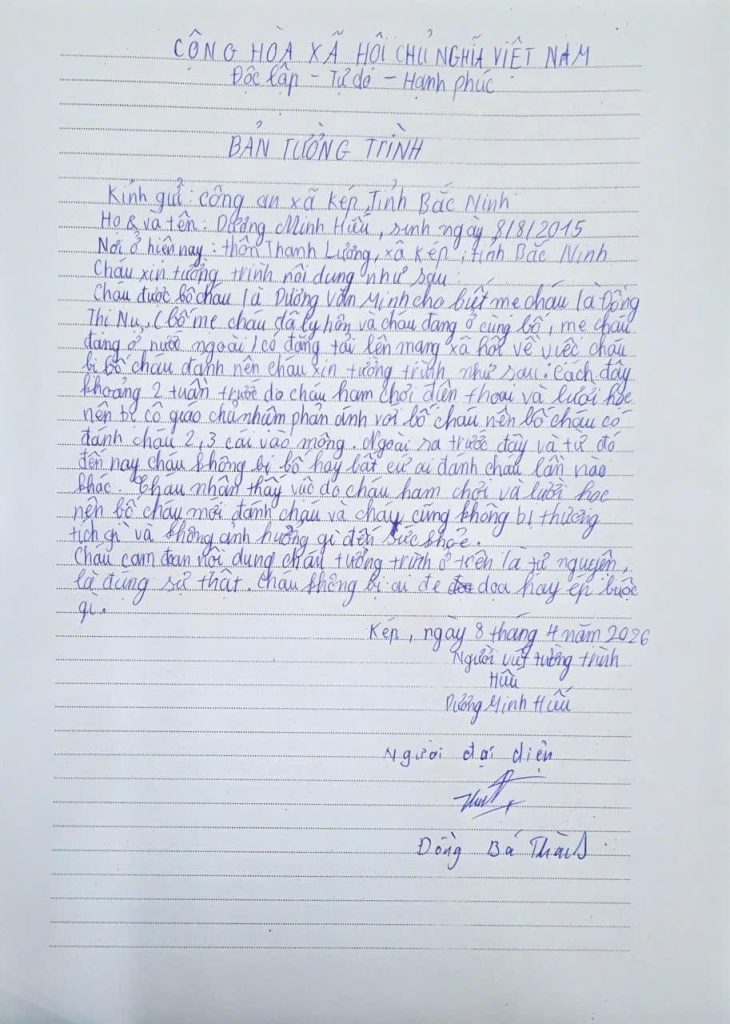 CỘNG HÒA XÃ HỘI CHỦ NGHĨA VIỆT NAM
Độc lập - Tự do - Hạnh phúc
BẢN TƯỜNG TRÌNH
Kính gửi: công an xã Kép, Tỉnh Bắc Ninh
Họ & và tên: Dương Minh Hữu, sinh ngày 8/8/2015
Nơi ở hiện nay: thôn Thanh Lương, xã Kép, tỉnh Bắc Ninh
Cháu xin tường trình nội dung như sau:
Cháu được bố cháu là Dương Văn Minh cho biết mẹ cháu là Đồng
Thị Nụ, (bố mẹ cháu đã ly hôn và cháu đang ở cùng bố, mẹ cháu
đang ở nước ngoài) có đăng tải lên mạng xã hội về việc cháu
bị bố cháu đánh nên cháu xin tường trình như sau: Cách đây
khoảng 2 tuần trước do cháu ham chơi điện thoại và lười học
nên bị cô giáo chủ nhiệm phản ánh với bố cháu nên bố cháu có
đánh cháu 2, 3 cái vào mông. Ngoài ra trước đây và từ đó
đến nay cháu không bị bố hay bất cứ ai đánh cháu lần nào
khác. Cháu nhận thấy việc do cháu ham chơi và lười học
nên bố cháu mới đánh cháu và cháu cũng không bị thương
tích gì và không ảnh hưởng gì đến sức khỏe.
Cháu cam đoan nội dung cháu tường trình ở trên là tự nguyện,
là đúng sự thật. Cháu không bị ai đe dọa hay ép buộc
gì.
Kép, ngày 8 tháng 4 năm 2026
Người viết tường trình
Hữu
Dương Minh Hữu
Người đại diện
Đồng Bá Thành